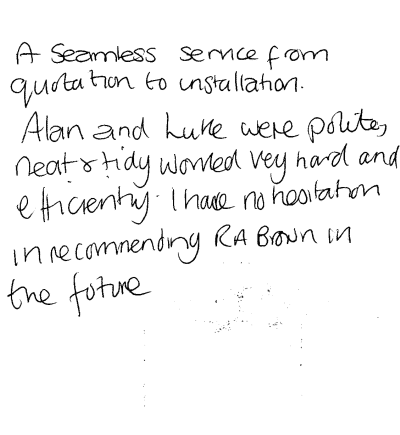 A Seamless service from
quotation to installation.
Alan and Luke were polite,
neat & tidy worked vey hard and
efficiently. I have no hesitation
in recommending RA Brown in
the future